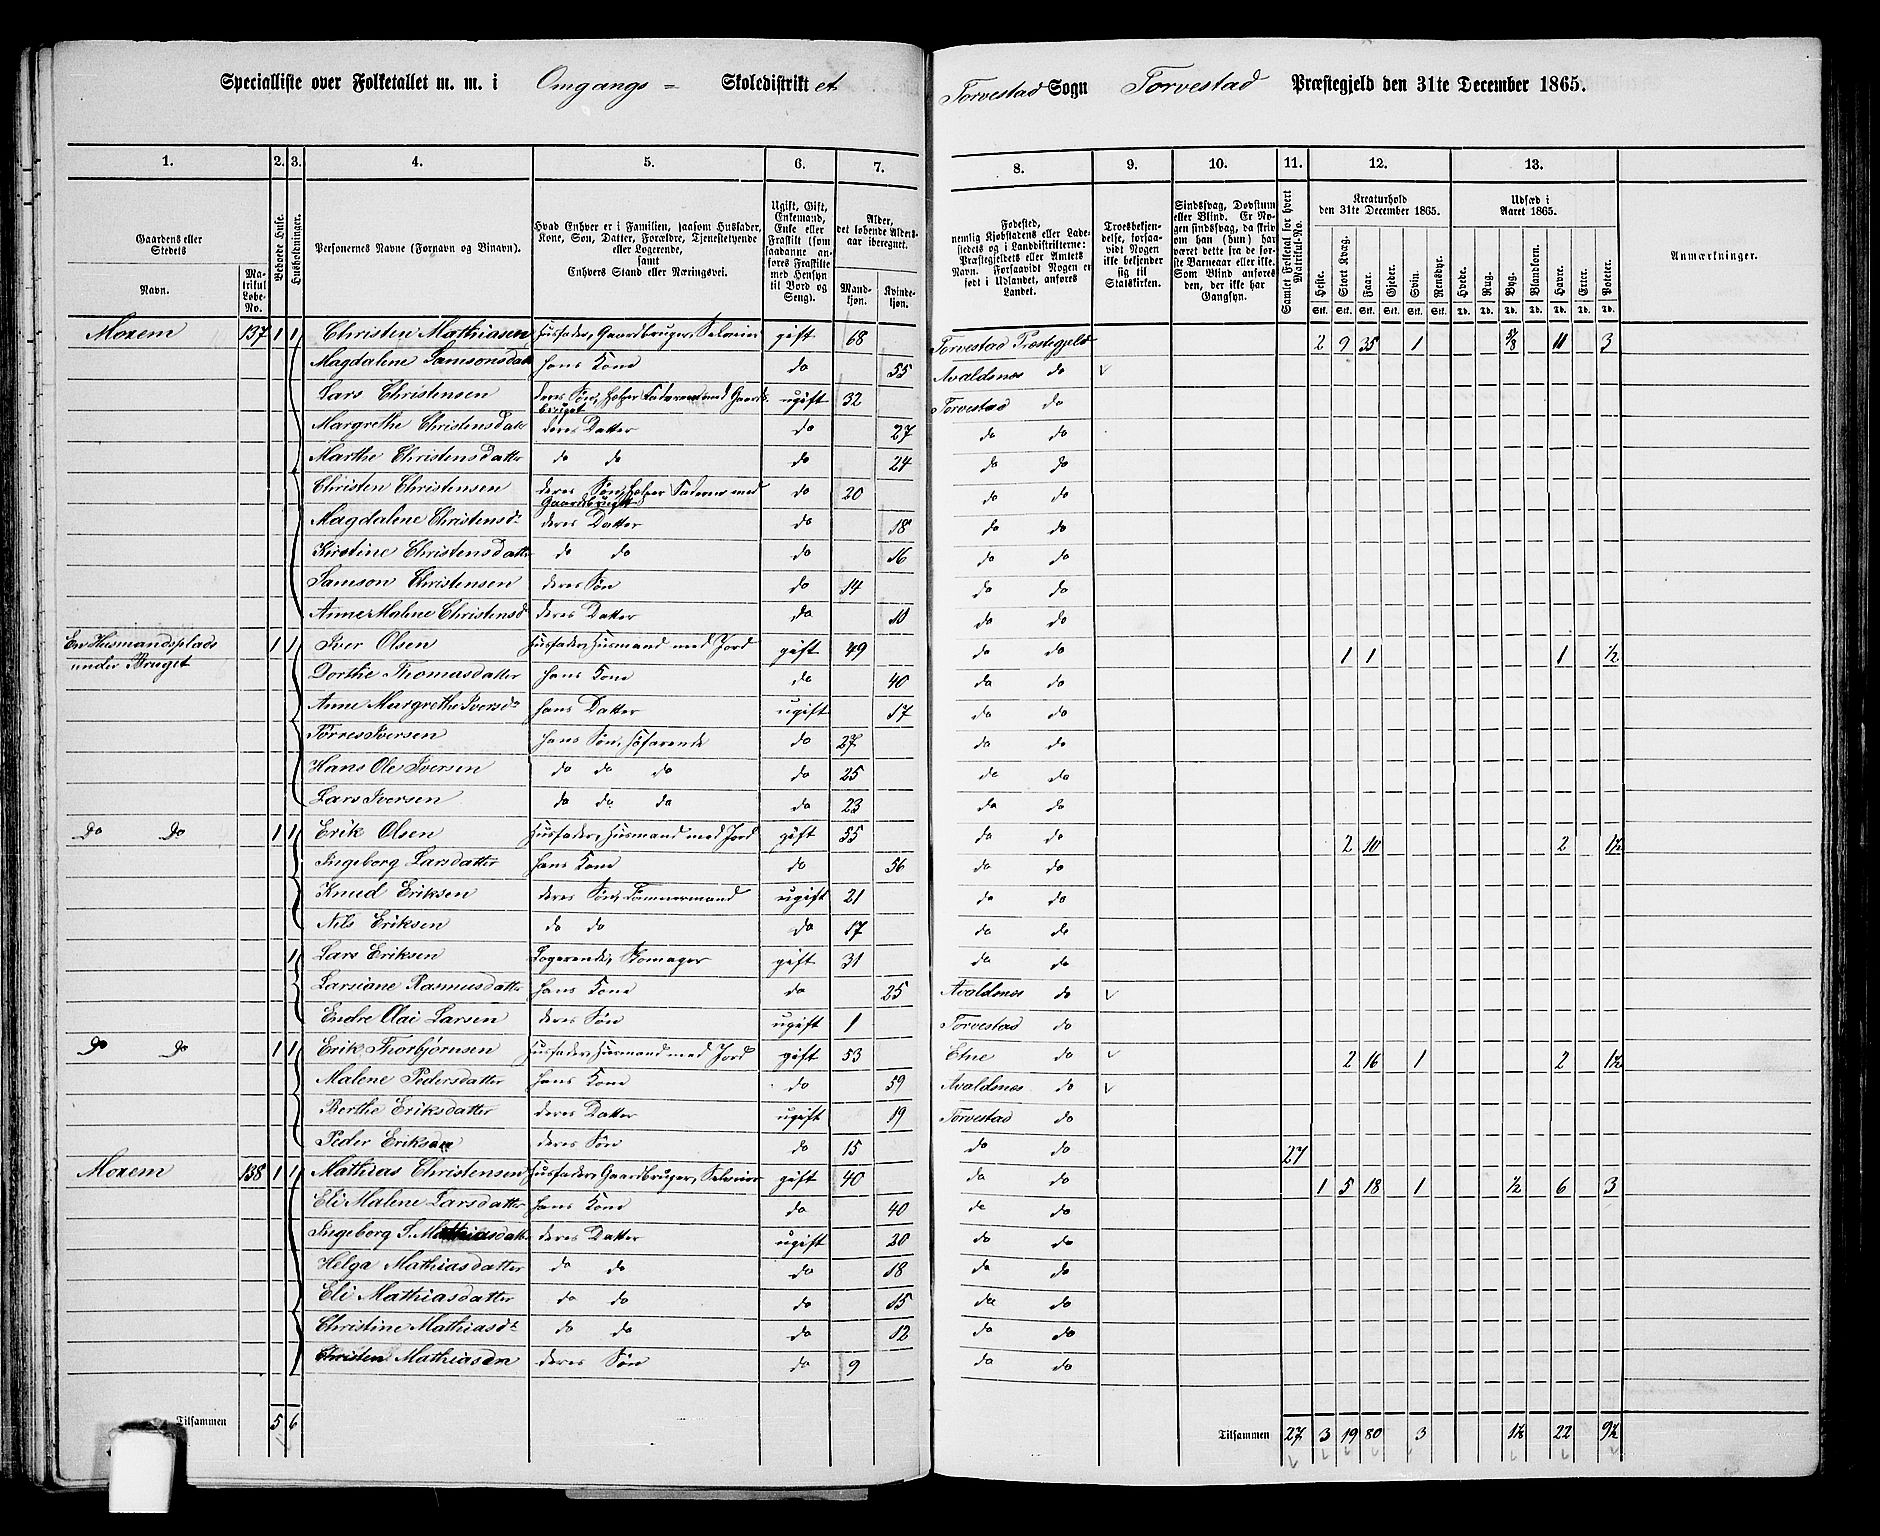 Specialliste over Folketallet m. m. i Omgangs = Skoledistrikt et Torvestad Sogn Torvestad Præstegjeld den 31te December 1865.
1. 2. 3. 4. 5. 6. 7. 8. 9. 10. 11. 12. 13.
Gaardens eller Stedets Navn. Matrikul Løbe-No. Beboede Huse. Husholdninger. Personernes Navne (Fornavn og Binavn).
Hvad Enhver er i Familien, saasom Husfader, Kone, Søn, Datter, Forældre, Tjenestetyende eller Logerende, samt Enhvers Stand eller Næringsvei.
Ugift, Gift, Enkemand, Enke eller Fraskilt (som saadanne anføres Fraskilte med Hensyn til Bord og Seng).
Alder, det løbende Aldersaar iberegnet. Mandkjøn. Kvindekjøn.
Fødested, nemlig Kjøbstadens eller Ladestedets og i Landdistrikterne: Præstegjeldets eller Amtets Navn. Forsaavidt Nogen er født i Udlandet, anføres Landet.
Troesbekjendelse, forsaavidt Nogen ikke bekjender sig til Statskirken.
Sindssvag, Døvstum eller Blind. Er Nogen sindssvag, da skrives om han (hun) har været dette fra de første Barneaar eller ikke. Som Blind anføres den, der ikke har Gangsyn.
Samlet Folketal for hvert Matrikul-No.
Kreaturhold den 31te December 1865. Heste. Stort Kvæg. Faar. Gjeder. Svin. Rensdyr.
Udsæd i Aaret 1865. Hvede. Rug. Byg. Blandkorn. Havre. Erter. Poteter.
Anmærkninger.
Stk. Stk. Stk. Stk. Stk. Stk. Td. Td. Td. Td. Td. Td. Td.
Moxem 137 1 1 Christen Mathiasen Husfader, Gaardbruger, Selveier gift 68 Torvestad Præstegjeld 2 9 35 1 5/8 11 3
Magdalene Samsonsdatt hans Kone do 55 Avaldsnes do
Lars Christensen deres Søn, hjelper Faderen med Gaardsbruget ugift 32 Torvestad do
Margrethe Christensdatt deres Datter do 27 do do
Marthe Christensdatter do do do 24 do do
Christen Christensen deres Søn, hjelper Faderen med Gaardsbruget do 20 do do
Magdalene Christensdr deres Datter do 18 do do
Kirstine Christensdatter do do do 16 do do
Samson Christensen deres Søn do 14 do do
Anne Malene Christensd deres Datter do 10 do do
En Husmandsplads under Bruget 1 1 Iver Olsen Husfader, Husmand med Jord gift 49 do do 1 1 1 1/2
Dorthe Thomasdatter hans Kone do 40 do do
Anne Margrethe Iversdr hans Datter ugift 17 do do
Tørres Iversen hans Søn, Søfarende do 27 do do
Hans Ole Iversen do do do do 25 do do
Lars Iversen do do do do 23 do do
Do Do 1 1 Erik Olsen Husfader, Husmand med Jord gift 55 do do 2 10 2 1 1/2
Ingeborg Larsdatter hans Kone do 56 do do
Knud Eriksen deres Søn, Tømmermand ugift 21 do do
Nils Eriksen do do do 17 do do
1 Lars Eriksen Logerende, Skomager gift 31 do do
Larsiane Rasmusdatter hans Kone do 25 Avaldsnes do
Endre Olai Larsen deres Søn ugift 1 Torvestad do
Do Do 1 1 Erik Thorbjørnsen Husfader, Husmand med Jord gift 53 Etne do 2 16 1 2 1 1/2
Malene Pedersdatter hans Kone do 59 Avaldsnes do
Berthe Eriksdatter deres Datter ugift 19 Torvestad do
Peder Eriksen deres Søn do 15 do do 27
Moxem 138 1 1 Mathias Christensen Husfader, Gaardbruger, Selveier gift 40 do do 1 5 18 1 1/2 6 3
Eli Malene Larsdatter hans Kone do 40 do do
Ingeborg S. Mathiasdatt deres Datter ugift 20 do do
Helga Mathiasdatter do do do 18 do do
Eli Mathiasdatter do do do 15 do do
Christine Mathiasdr do do do 12 do do
Christen Mathiasen deres Søn do 9 do do
Tilsammen 5 6 Tilsammen 27 3 19 80 3 1 1/2 22 9 1/2